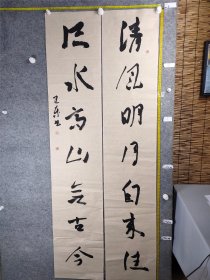 清风明月自来往
流水高山无古今